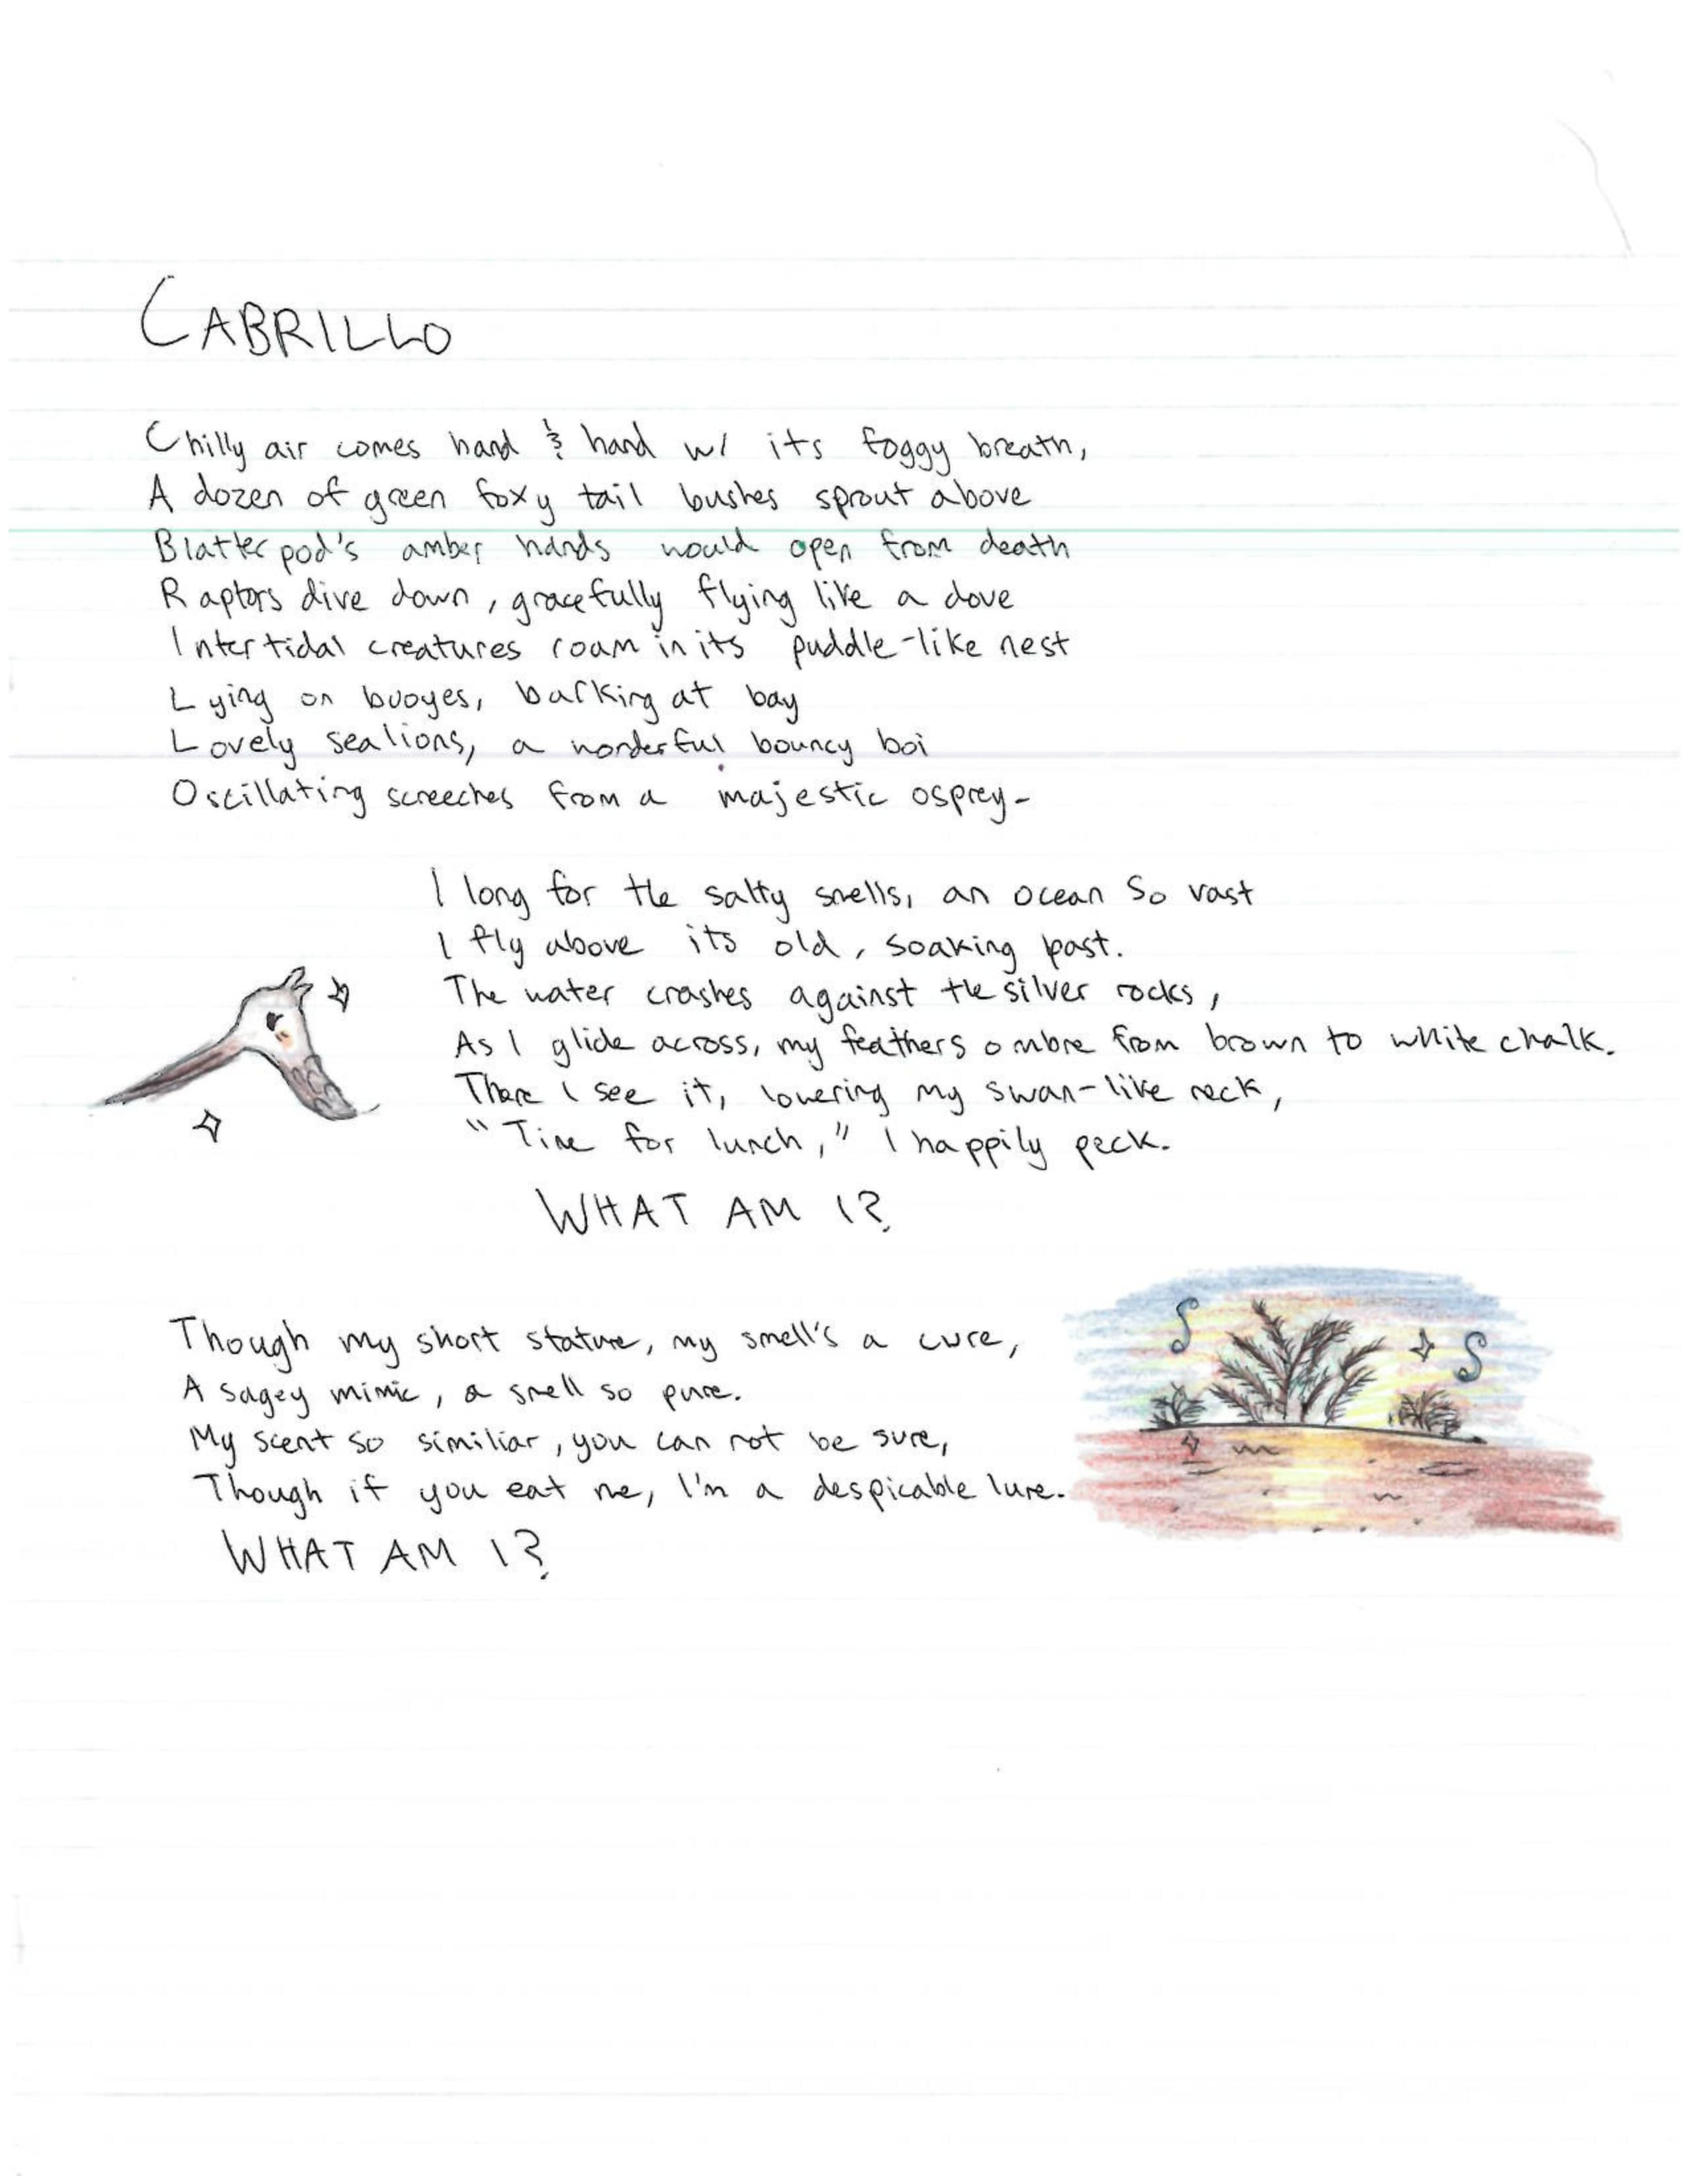 CABRILLO
Chilly air comes hand & hand w/ its foggy breath,
A dozen of green foxy tail bushes sprout above
Blatterpod's amber hands would open from death
Raptors dive down, gracefully flying like a dove
Intertidal creatures roam in its puddle-like nest
Lying on buoyes, barking at bay
Lovely sealions, a wonderful bouncy boi
Oscillating screeches from a majestic osprey-
I long for the salty smells, an ocean so vast
I fly above its old, soaking past.
The water crashes against the silver rocks,
As I glide across, my feathers ombre from brown to white chalk.
There I see it, lowering my swan-like neck,
"Time for lunch," I happily peck.
WHAT AM I?
Though my short stature, my smell's a cure,
A sagey mimic, a smell so pure.
My scent so similiar, you can not be sure,
Though if you eat me, I'm a despicable lure.
WHAT AM I?